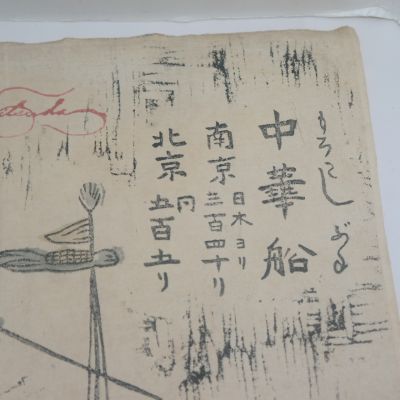 もろこしぶね
中華船
南京 日本ヨリ三百四十リ
北京 同五百五リ